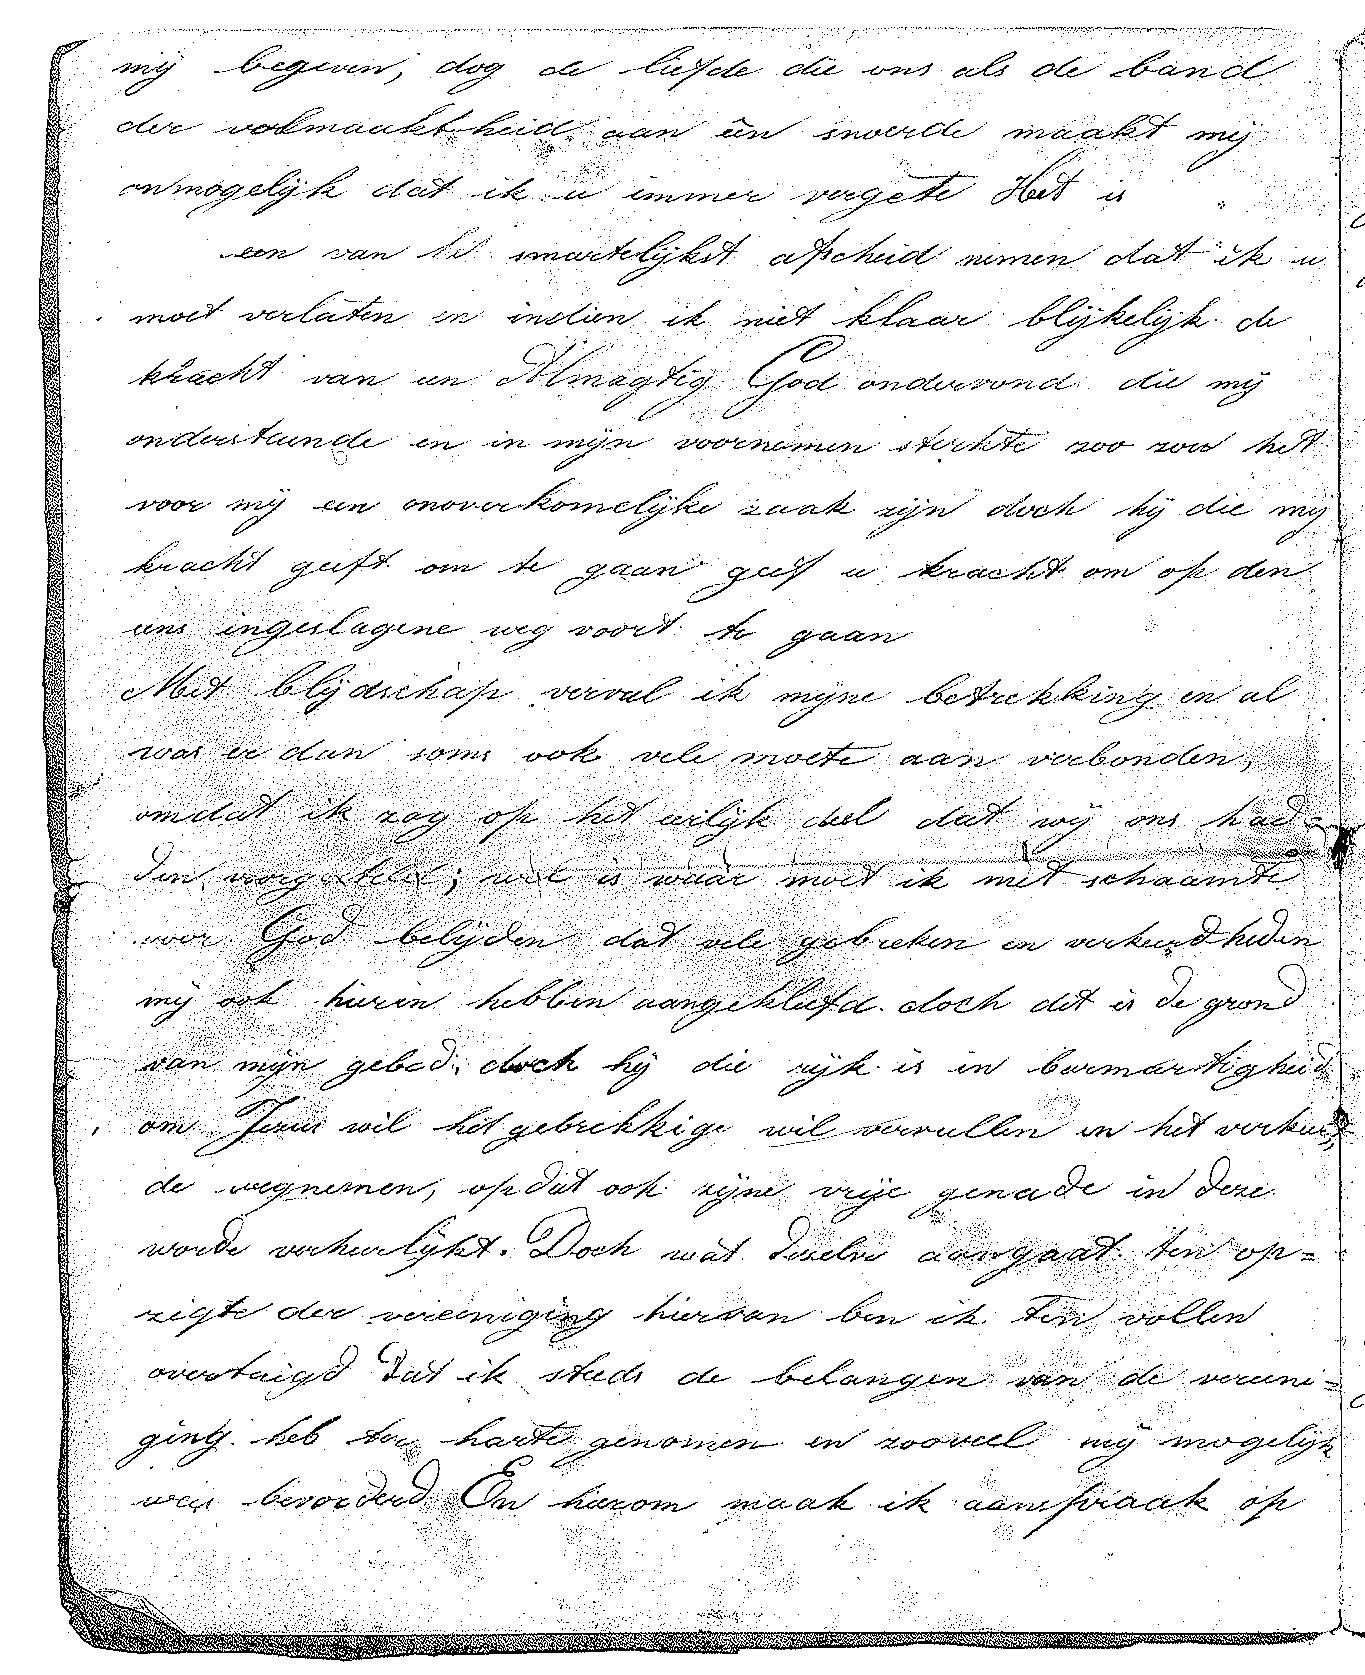 mij begeven, dog de liefde die ons als de band
der volmaaktheid aan één snoerde maakt mij
onmogelijk dat ik u immer vergete Het is
een van het smartelijkst afscheid nemen dat ik u
moet verlaten en indien ik niet klaar blijkelijk de
kracht van een Almagtig God ondervond die mij
ondersteunde en in mijn voornemen sterkte zoo zou het
voor mij een onoverkomelijke zaak zijn doch hij die mij
kracht geeft om te gaan geef u kracht om op den
eens ingeslagene weg voort te gaan
Met blijdschap vervul ik mijne betrekking en al
was er dan soms ook vele moete aan verbonden,
omdat ik zag op het eerlijk doel dat wij ons had-
den voorgesteld; wel is waar moet ik met schaamte
voor God belijden dat vele gebreken en verkeerdheden
mij ook hierin hebben aangekleefd. doch dit is de grond
van mijn gebed; doch hij die rijk is in barmartigheid
om Jezus wil het gebrekkige wil vervullen en het verkeer-
de wegnemen, opdat ook zijne vrije genade in deze
worde verheerlijkt. Doch wat dezelve aangaat ten op=
zigte der vereeniging hiervan ben ik ten vollen
overtuigd dat ik steeds de belangen van de vereeni=
ging heb ter harte genomen en zooveel mij mogelijk
was bevorderd En hierom maak ik aanspraak op